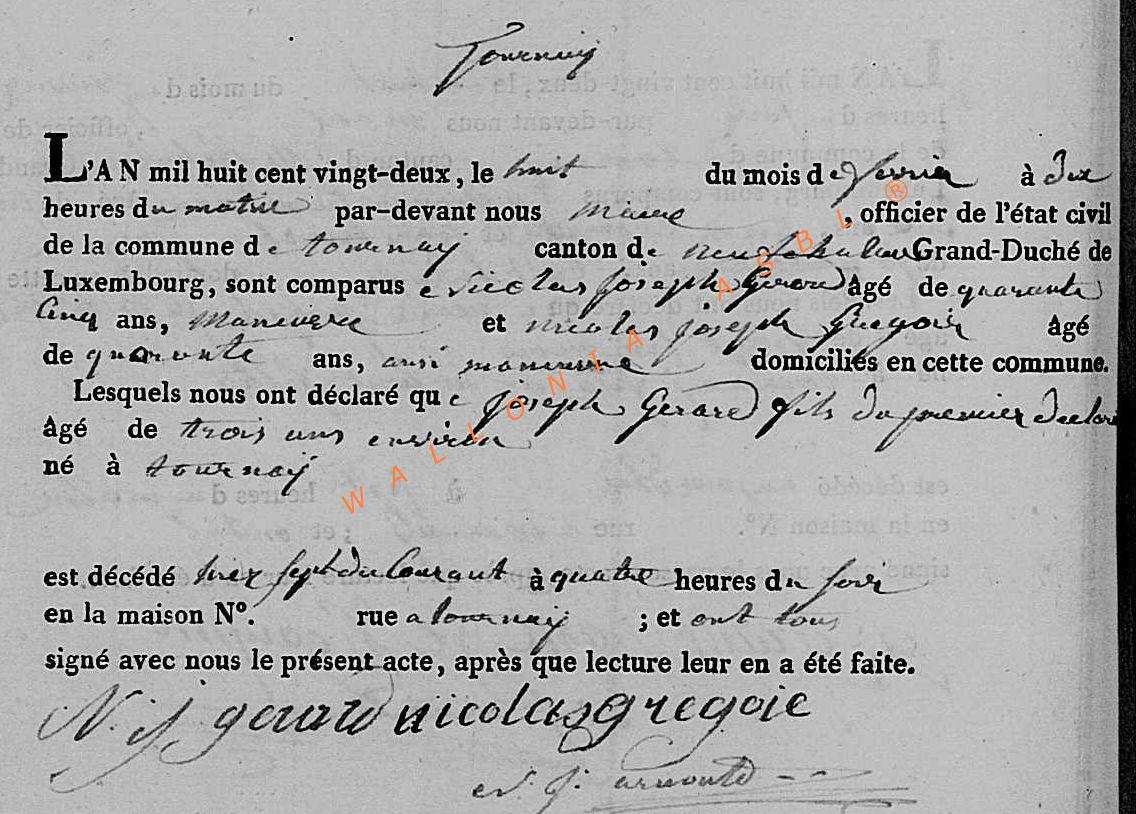 Tournay
L'AN mil huit cent vingt-deux, le huit du mois de fevrier à dix
heures du matin par-devant nous Maire, officier de l'état civil
de la commune de tournay canton de neufchateau Grand-Duché de
Luxembourg, sont comparus Nicolas Joseph Gerard âgé de quarante
Cinq ans, Manuvre et nicolas joseph Gregoir âgé
de quarante ans, ausi manuvre domiciliés en cette commune.
Lesquels nous ont déclaré que joseph Gerard fils du premier declar
âgé de trois ans environ
né à tournay
est décédé hier sept du Courant à quatre heures du soir
en la maison N°. rue a tournay ; et ont tous
signé avec nous le présent acte, après que lecture leur en a été faite.
N. j gerard nicolas gregoie
WALLONIA ASBL ®